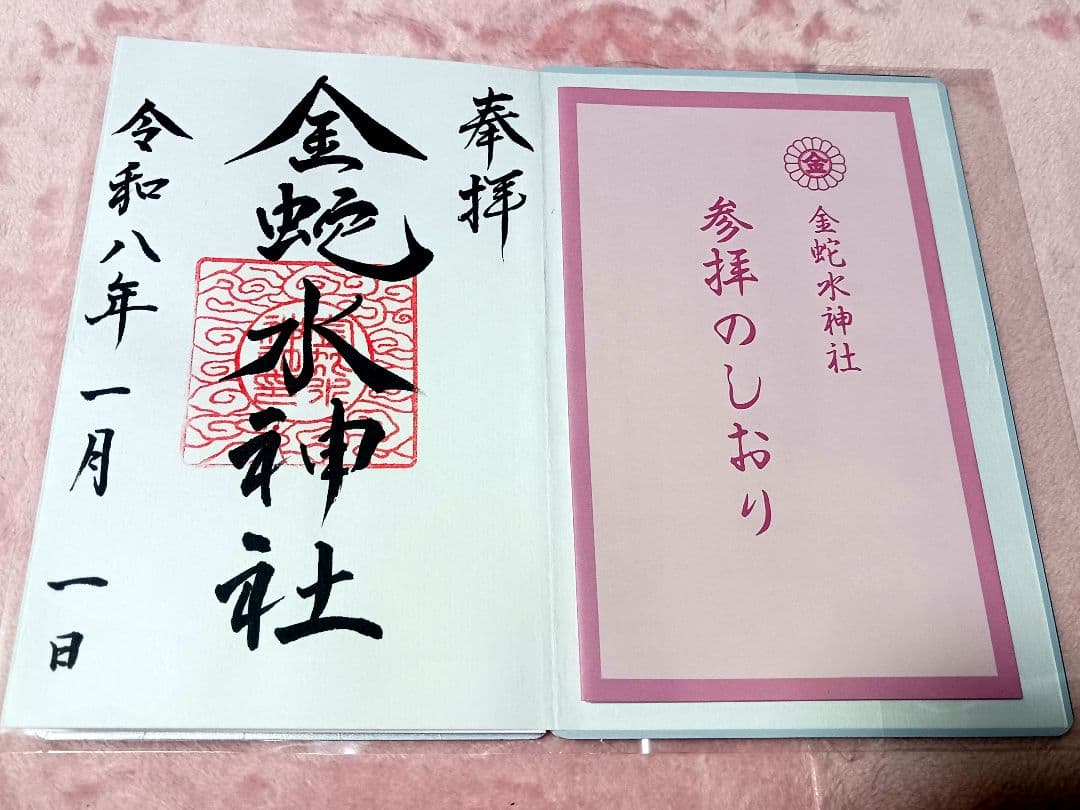 金
金蛇水神社
参拝のしおり
奉拝
金蛇水神社
令和八年一月一日